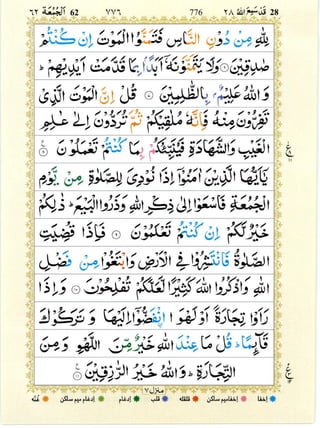 الجمعة ٦٢ 62 ٧٧٦ 776 قد سمع الله ٢٨ 28
لِلّٰهِ مِنْ دُوْنِ النَّاسِ فَتَمَنَّوُا الْمَوْتَ اِنْ كُنْتُمْ
صٰدِقِيْنَ ۝ وَلَا يَتَمَنَّوْنَهٗۤ اَبَدًۢا بِمَا قَدَّمَتْ اَيْدِيْهِمْ ؕ
وَاللّٰهُ عَلِيْمٌۢ بِالظّٰلِمِيْنَ ۝ قُلْ اِنَّ الْمَوْتَ الَّذِيْ
تَفِرُّوْنَ مِنْهُ فَاِنَّهٗ مُلٰقِيْكُمْ ثُمَّ تُرَدُّوْنَ اِلٰى عٰلِمِ
الْغَيْبِ وَالشَّهَادَةِ فَيُنَبِّئُكُمْ بِمَا كُنْتُمْ تَعْمَلُوْنَ ۝
يٰۤاَيُّهَا الَّذِيْنَ اٰمَنُوْۤا اِذَا نُوْدِيَ لِلصَّلٰوةِ مِنْ يَّوْمِ
الْجُمُعَةِ فَاسْعَوْا اِلٰى ذِكْرِ اللّٰهِ وَذَرُوا الْبَيْعَ ؕ ذٰلِكُمْ
خَيْرٌ لَّكُمْ اِنْ كُنْتُمْ تَعْلَمُوْنَ ۝ فَاِذَا قُضِيَتِ
الصَّلٰوةُ فَانْتَشِرُوْا فِي الْاَرْضِ وَابْتَغُوْا مِنْ فَضْلِ
اللّٰهِ وَاذْكُرُوا اللّٰهَ كَثِيْرًا لَّعَلَّكُمْ تُفْلِحُوْنَ ۝ وَاِذَا
رَاَوْا تِجَارَةً اَوْ لَهْوَا ۨ انْفَضُّوْۤا اِلَيْهَا وَتَرَكُوْكَ
قَآئِمًا ؕ قُلْ مَا عِنْدَ اللّٰهِ خَيْرٌ مِّنَ اللَّهْوِ وَمِنَ
التِّجَارَةِ ؕ وَاللّٰهُ خَيْرُ الرّٰزِقِيْنَ ۝
منزل ٧
اخفا اخفا میم ساکن قلقله قلب ادغام ادغام میم ساکن غنه